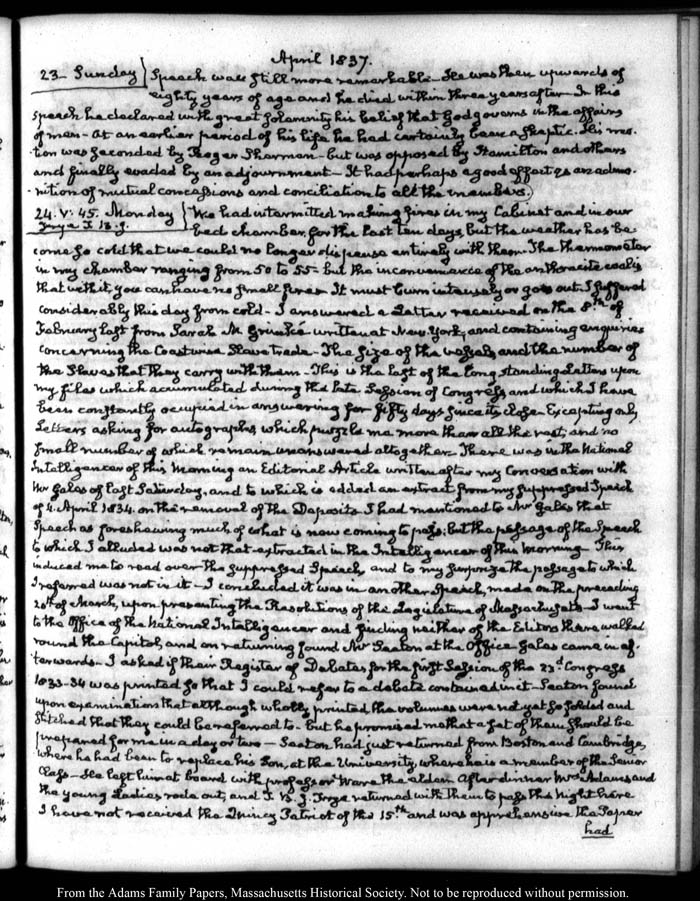 April 1837.
23- Sunday } Speech was still more remarkable- He was then upwards of
eighty years of age and he died within three years after- In this
Speech he declared with great solemnity his belief that God governs in the affairs
of men- At an earlier period of his life he had certainly been a Skeptic. His mo-
tion was seconded by Roger Sherman- but was opposed by Hamilton and others
and finally evaded by an adjournment- It had perhaps a good effect as an admo-
nition of mutual concessions and conciliation to all the members.)
24. V: 45. Monday } We had intermitted making fires in my Cabinet and in our
Frye I. B. J. bed chamber, for the last ten days, but the weather has be-
come so cold that we could no longer dispense entirely with them. The thermometer
in my chamber ranging from 50 to 55- but the inconvenience of the anthracite coal is
that with it, you can have no small fires. It must burn intensely or go out. I suffered
considerably this day from cold- I answered a Letter received on the 8th of
February last from Sarah M. Grimké written at New York, and containing enquiries
concerning the Coastwise Slave trade- The size of the vessels, and the number of
the Slaves that they carry with them- This is the last of the long standing Letters upon
my files which accumulated during the late Session of Congress and which I have
been constantly occupied in answering for fifty days since its close- Excepting only
Letters asking for autographs, which puzzle me more than all the rest, and no
small number of which remain unanswered altogether. There was in the National
Intelligencer of this Morning an Editorial Article written after my Conversation with
Mr Gales of last Saturday, and to which is added an extract from my suppressed Speech
of 4. April 1834. on the removal of the Deposits I had mentioned to Mr Gales that
Speech as foreshewing much of what is now coming to pass; but the passage of the Speech
to which I alluded was not that extracted in the Intelligencer of this Morning- This
induced me to read over the suppressed Speech, and to my surprize the passage to which
I referred was not in it- I concluded it was in another Speech, made on the preceding
of March, upon presenting the Resolutions of the Legislature of Massachusetts- I went
to the Office of the National Intelligencer and finding neither of the Editors there walked
round the Capitol, and on returning found Mr Seaton at the Office Gales came in af-
terwards- I asked if their Register of Debates for the first Session of the 23d Congress
1833-34 was printed so that I could refer to a debate contained in it- Seaton found
upon examination that although wholly printed the volumes were not yet so folded and
stitched that they could be referred to- but he promised me that a set of them should be
prepared for me in a day or two- Seaton had just returned from Boston and Cambridge,
where he had been to replace his Son, at the University, where he is a member of the Senior
Class- He left him at board with professor Ware the elder. After dinner Mrs Adams and
the young Ladies rode out, and I. B. J. Frye returned with them to pass the night here
I have not received the Quincy Patriot of the 15th and was apprehensive the Paper
had
From the Adams Family Papers, Massachusetts Historical Society. Not to be reproduced without permission.